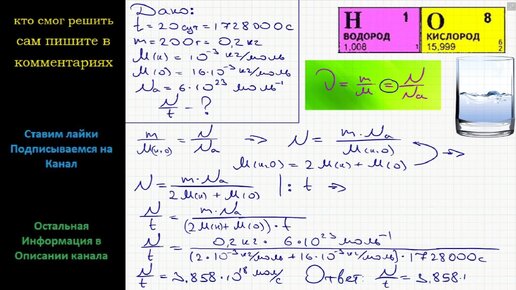 кто смог решить
сам пишите в
комментариях
Ставим лайки
Подписываемся на
Канал
Остальная
Информация в
Описании канала
Дано:
t = 20 сут = 1728000 с
m = 200 г = 0,2 кг
M(н) = 10⁻³ кг/моль
M(о) = 16·10⁻³ кг/моль
Nа = 6·10²³ моль⁻¹
N/t - ?
H 1
ВОДОРОД
1,008
O 8
КИСЛОРОД
15,999
6
2
ν = m/M = N/Nа
m/M(н₂о) = N/Nа => N = m·Nа/M(н₂о)
M(н₂о) = 2M(н) + M(о)
N = m·Nа/(2M(н) + M(о)) | : t =>
N/t = m·Nа/((2M(н) + M(о))·t)
N/t = 0,2 кг · 6·10²³ моль⁻¹/((2·10⁻³ кг/моль + 16·10⁻³ кг/моль)·1728000 с)
N/t = 3,858·10¹⁸ мол/с Ответ: N/t = 3,858·